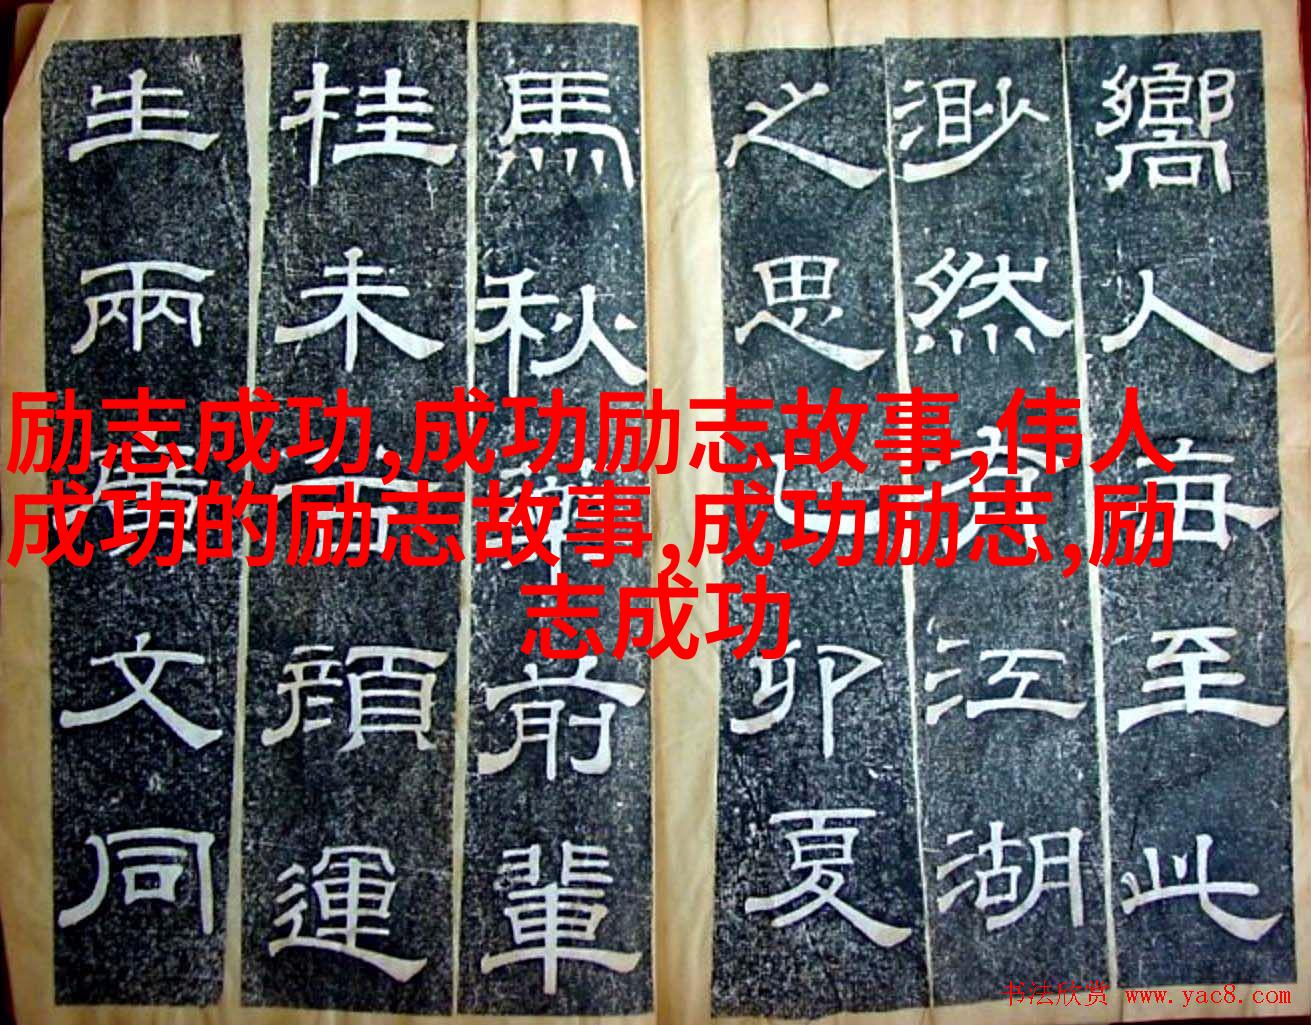 嚮人海至此
渺然有江湖
之思乙卯夏
馬秋前輩
桂未谷顏運
生兩廣文同
励志成功,成功励志故事,伟人
成功的励志故事,成功励志,励
志成功
书法欣赏 www.yac8.com